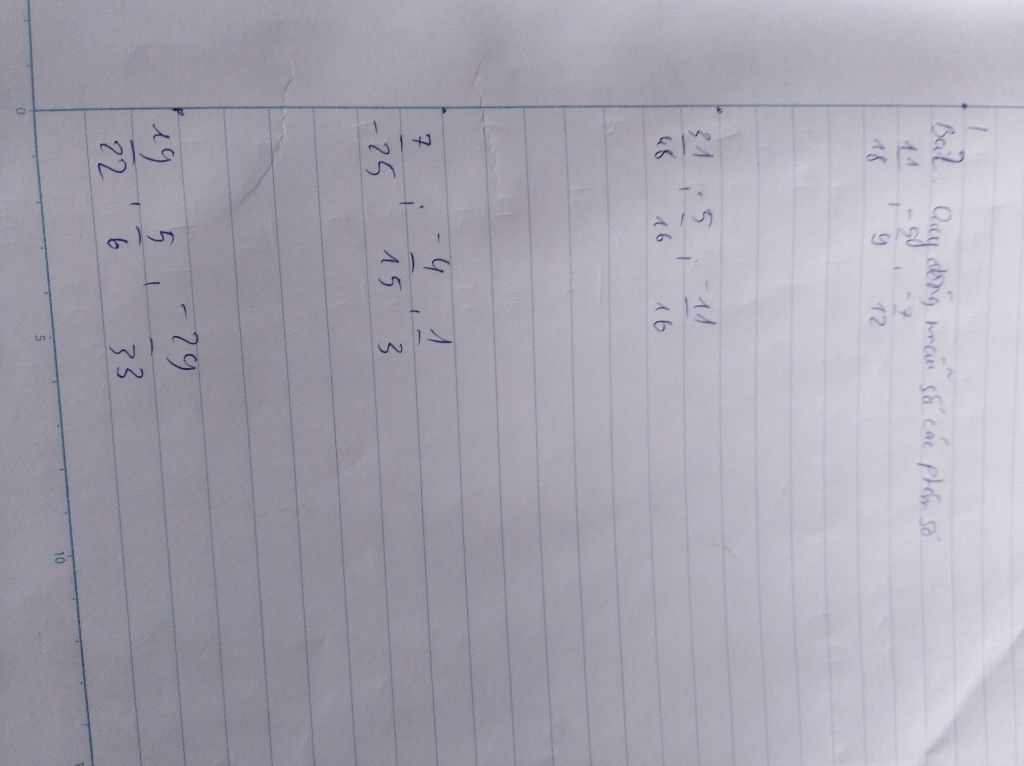 1
Bài 2: Quy đồng mẫu số các phân số
11/18 , -5/9 , -7/12
31/48 ; -5/16 , -11/16
7/-25 ; -4/15 , 1/3
19/22 , 5/6 , -29/33
0 5 10